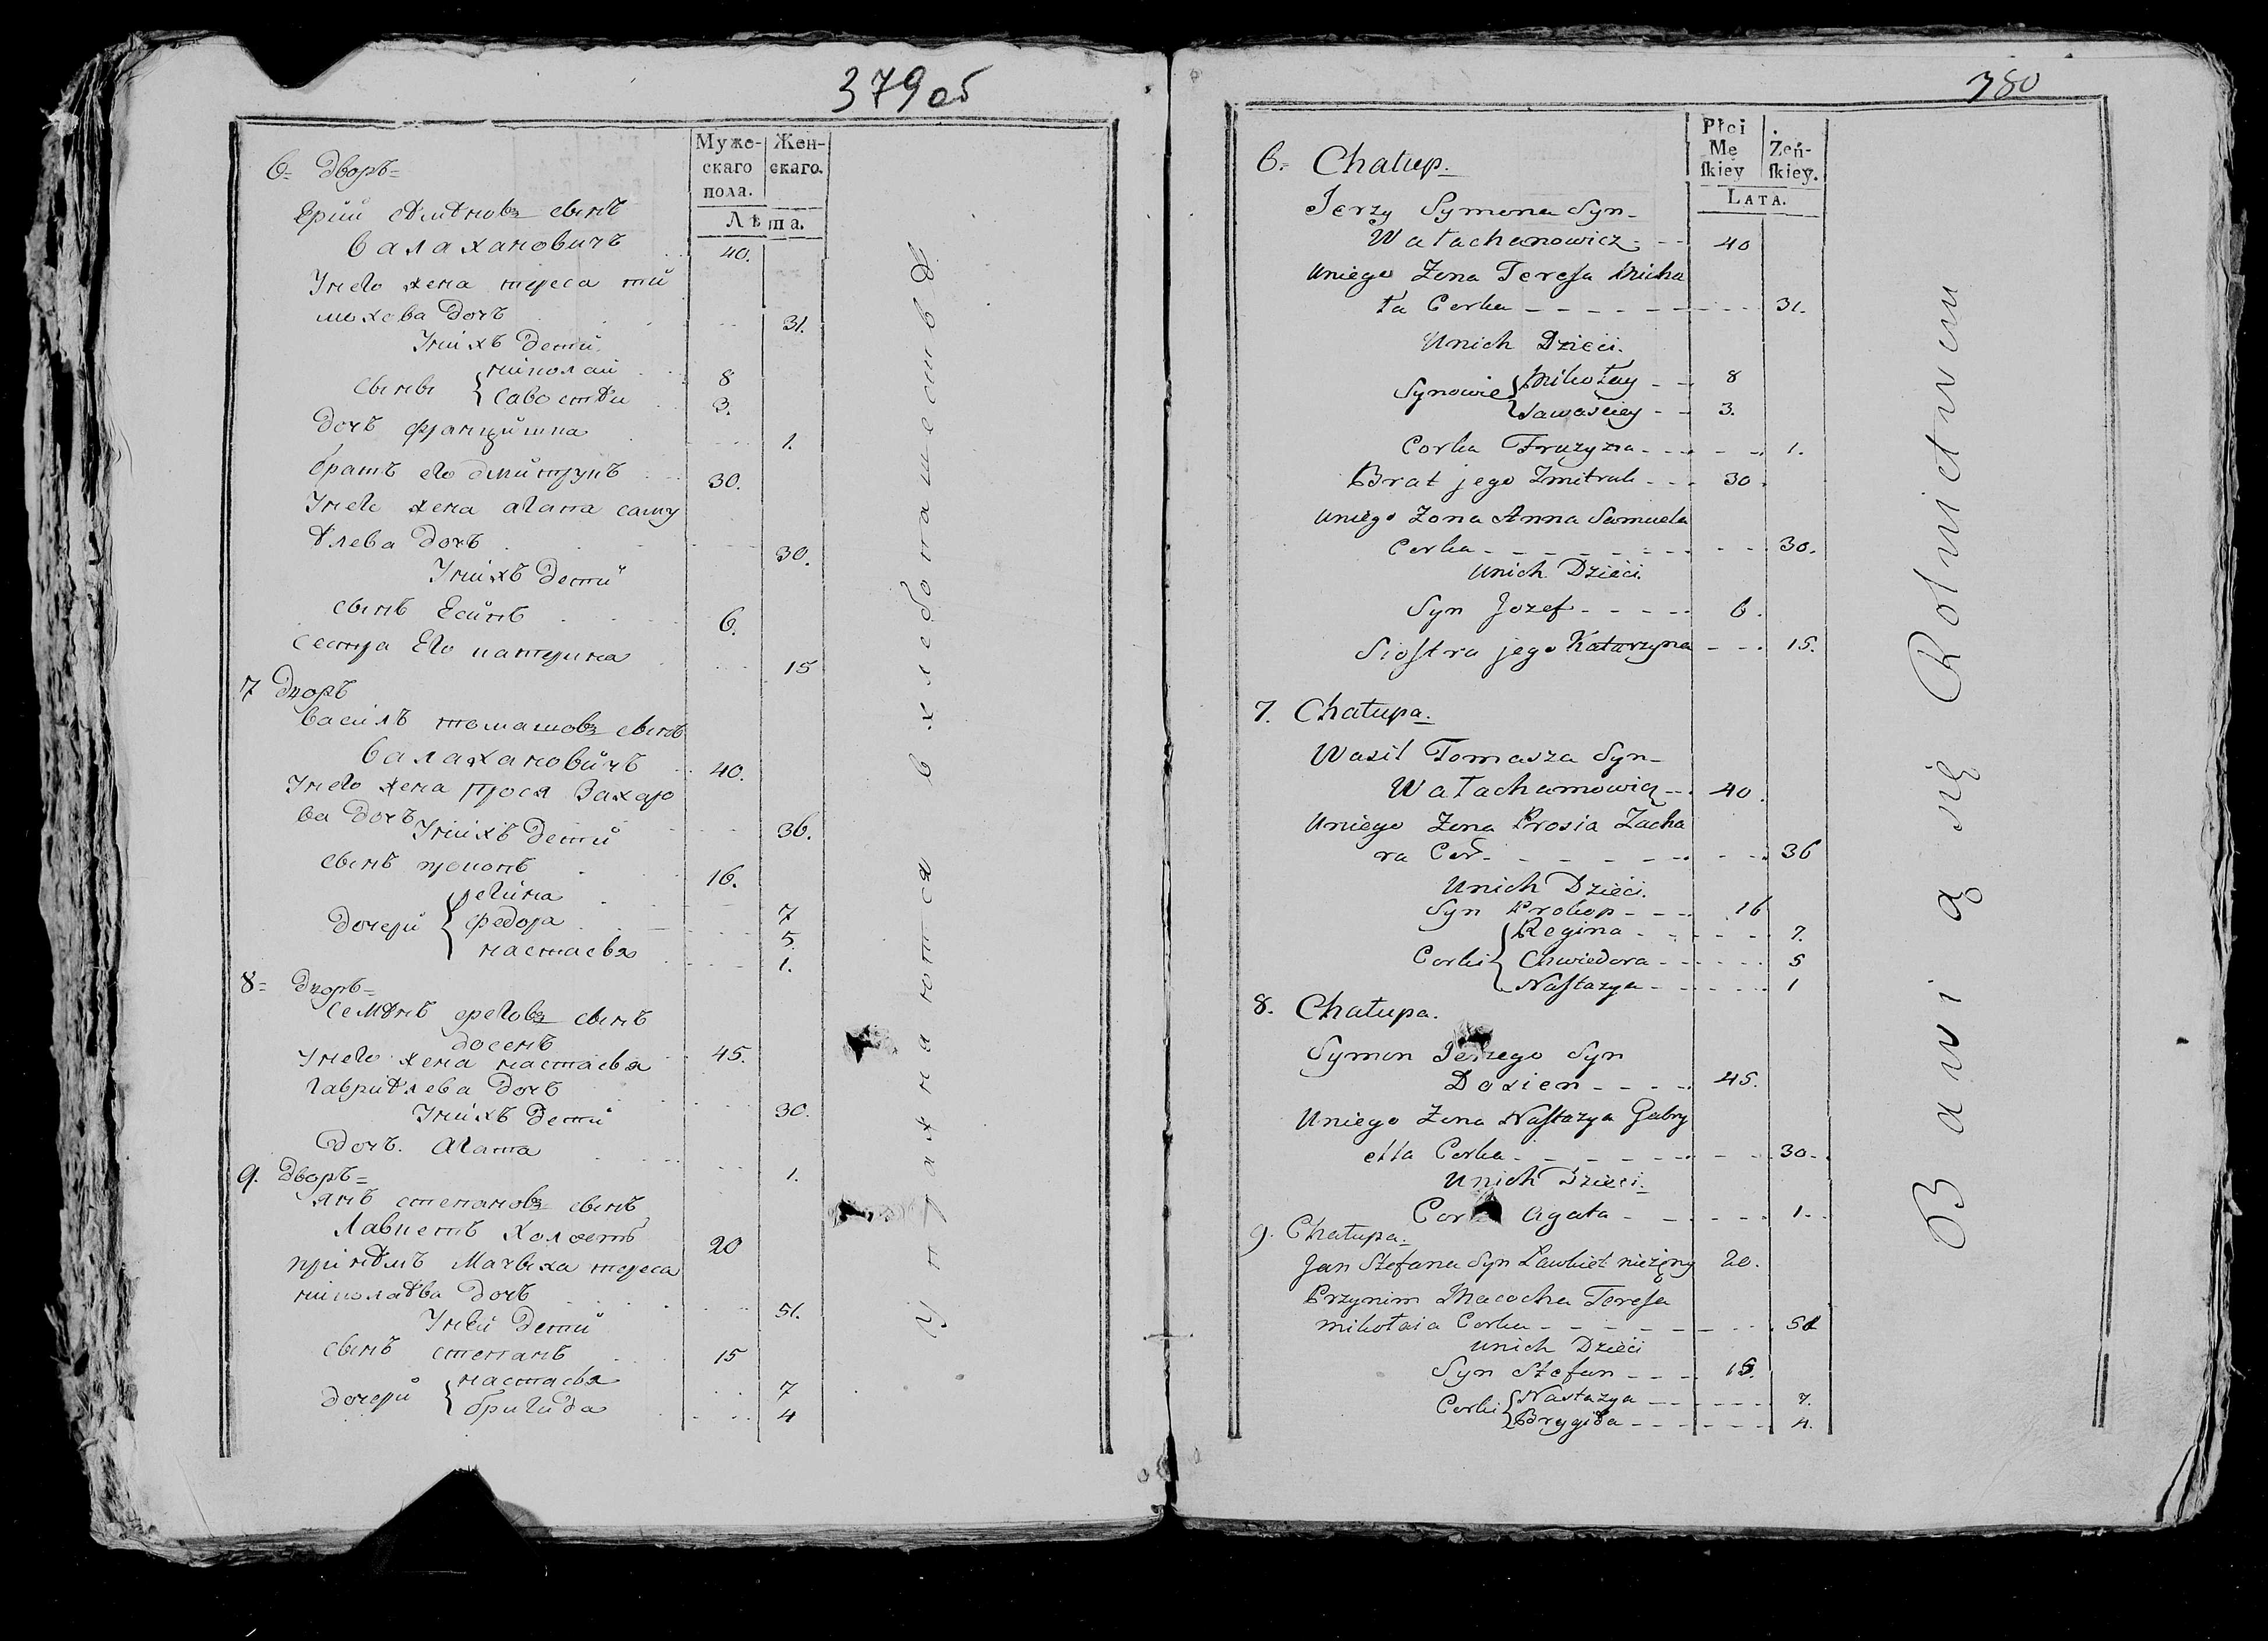 379 об
Муже-
скаго
пола.
Жен-
скаго.
Лѣта.
6= Дворъ=
Ерій сѣмѣновъ сынъ
валаханович̾ъ 40.
Унего жена тереса ми
ш хова дочъ 31.
Унихъ дети
сыны { миколай 8
савостѣи 3.
дочъ францишка 1.
братъ его дмитрукъ 30.
Унего жена агапа саму
ѣлева дочъ 30.
Унихъ дети
сынъ Есипъ 6.
сестра Его катерина 15
7 Дворъ
василъ томашовъ сынъ
валахановичъ 40.
Унего жена прося Захаро
ва дочъ 36.
Унихъ дети
сынъ прокопъ 16.
дочери { регина 7
федора 5
настасья 1.
8= Дворъ=
семѣнъ ереговъ сынъ
досенъ 45.
Унего жена настасья
гавриѣлева дочъ 30.
Унихъ дети
Дочъ. Агата 1.
9. Дворъ=
янъ степановъ сынъ
Лавкетъ холостъ 20
принѣмъ Мачыха тереса
николаѣва дочъ 51.
Унеи дети
сынъ степанъ 15
дочери { настасья 7
бригида 4
упражнаются в хлебопашествѣ
380
Płci
Mę
skiey
Żeń-
skiey.
LATA.
6= Chałup.
Jerzy Symona Syn-
Wałachanowicz - - 40
Uniego Zona Teresa Micha
ła Corka - - - - - - - - 31.
Unich Dzieci.
Synowie { Mikołay - - 8
Sawasciey - - 3.
Corka Fruzyna - - - - 1.
Brat jego Zmitruk - - - 30.
Uniego Zona Anna Samuela
Corka - - - - - - - - - 30.
Unich Dzieci.
Syn Jozef - - - - - 6.
Siostra jego Katarzyna - - - 15.
7. Chałupa.
Wasil Tomasza Syn-
Wałachanowicz - - - 40.
Uniego Zona Prosia Zacha
ra Cor - - - - - - - - 36
Unich Dzieci.
Syn Prokop - - - - 16
Corki { Regina - - - - - - 7.
Chwiedora - - - - - - 5
Nastazya - - - - - - 1
8. Chałupa.
Symon Jerzego Syn
Dosien - - - - - 45.
Uniego Zona Nastazya Gabry
ella Corka - - - - - - - - 30 -
Unich Dzieci.
Corka Agata - - - - - - 1 -
9. Chałupa.
Jan Stefana Syn Lawkiet nieżęny 20.
Przynim Macocha Teresa
Mikołaia Corka - - - - - - - - 51
Unich Dzieci
Syn Stefan - - - - 15.
Corki { Nastazya - - - - - - 7.
Brygida - - - - - - 4.
Bawią się Rolnictwem